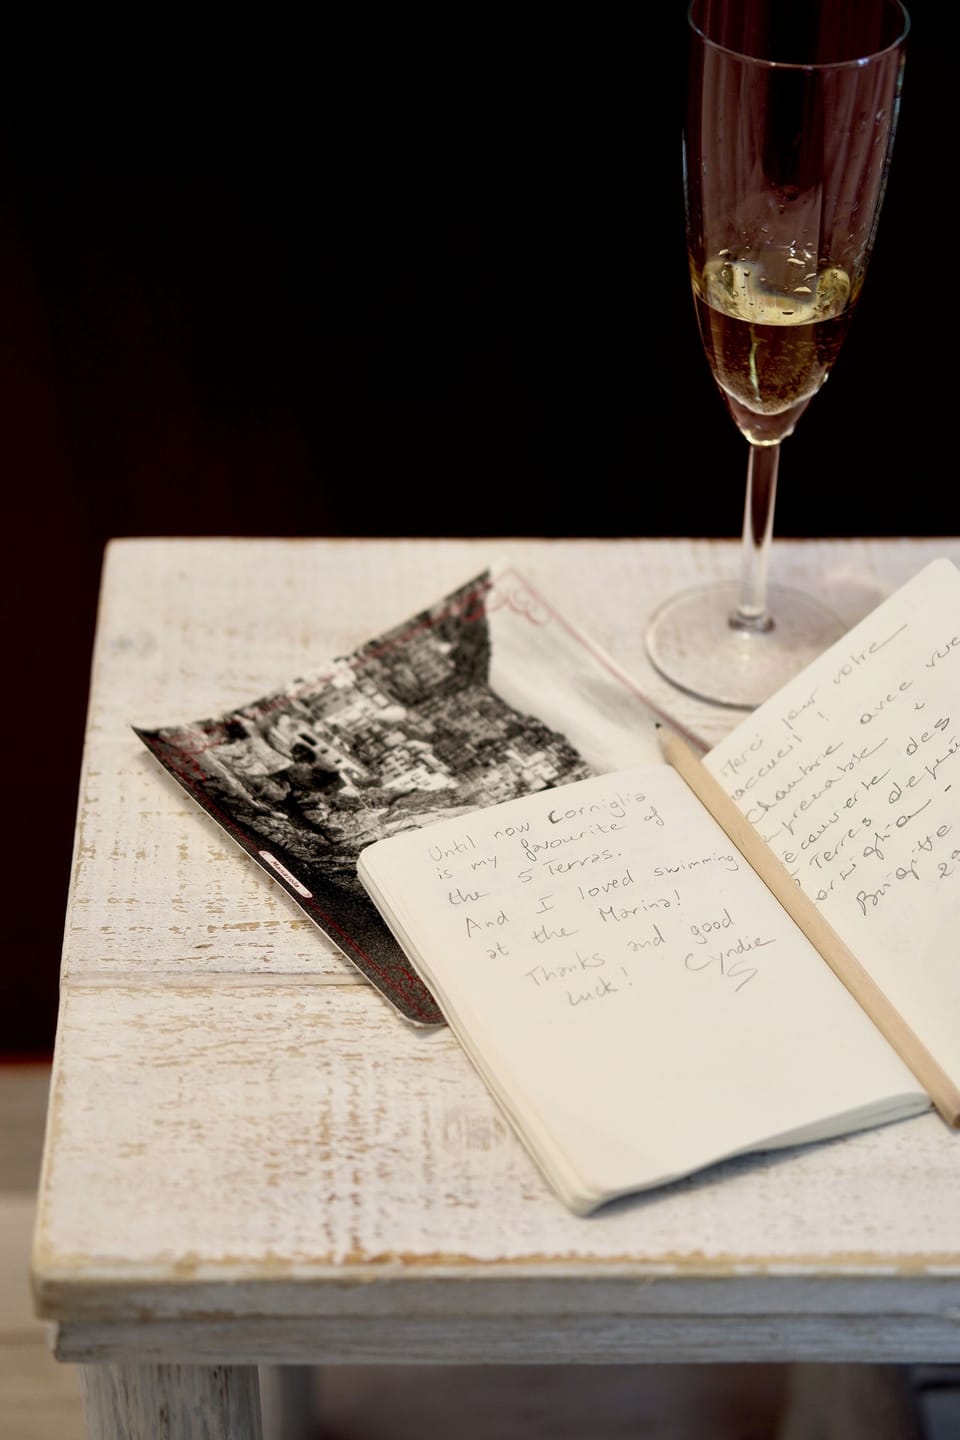 Until now Corniglia
is my favourite of
the 5 Terras.
And I loved swimming
at the Marina!
Thanks and good
Luck! Cyndie
Merci pour votre
accueil !
Chambre avec vue
imprenable
découverte des
5 Terres depuis
Corniglia -
Brigitte
Manarola